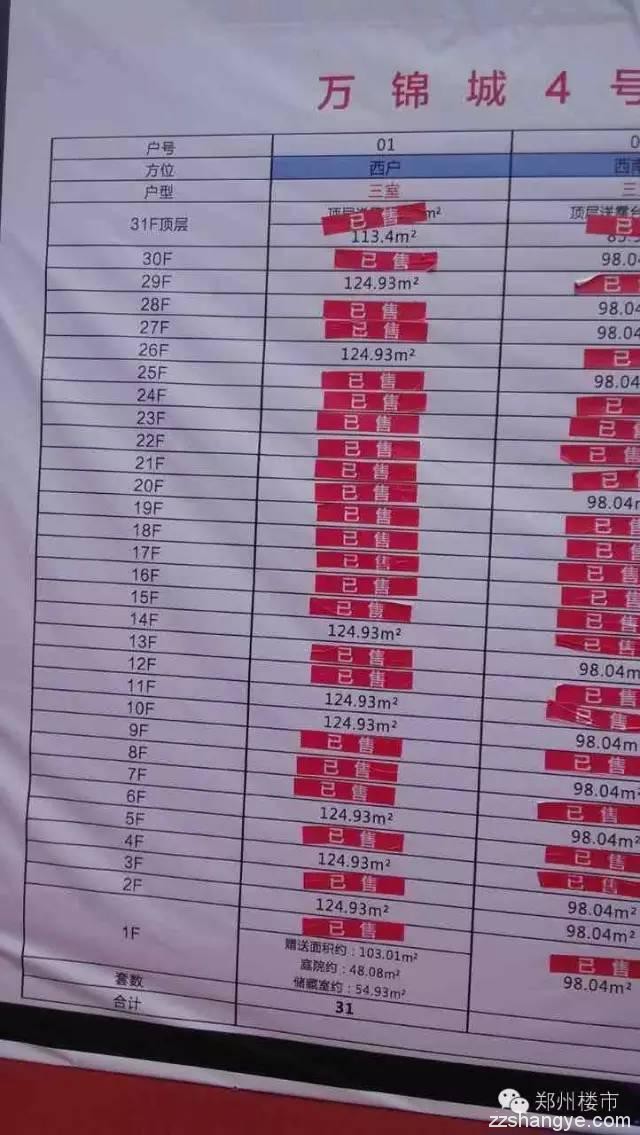 万锦城4号
户号 01
方位 西户 西南
户型 三室 三
31F顶层 顶层送 m² 顶层送露台
已售 已
113.4m²
30F 已售 98.04
29F 124.93m² 已
28F 已售 98.04m
27F 已售 98.04m
26F 124.93m² 已
25F 已售 98.04m
24F 已售 已
23F 已售 已
22F 已售 已售
21F 已售 已
20F 已售 98.04m
19F 已售 已售
18F 已售 已售
17F 已售 已售
16F 已售 已售
15F 已售 已售
14F 124.93m² 已售
13F 已售 98.04m
12F 已售 已售
11F 124.93m² 已售
10F 124.93m² 98.04m²
9F 已售 已售
8F 已售 98.04m²
7F 已售 已售
6F 124.93m² 98.04m²
5F 已售 已售
4F 124.93m² 已售
3F 已售 98.04m²
2F 124.93m² 98.04m²
1F 已售 已售
赠送面积约：103.01m² 98.04m²
庭院约：48.08m²
储藏室约：54.93m²
套数 31
合计
郑州楼市
zzshangye.com